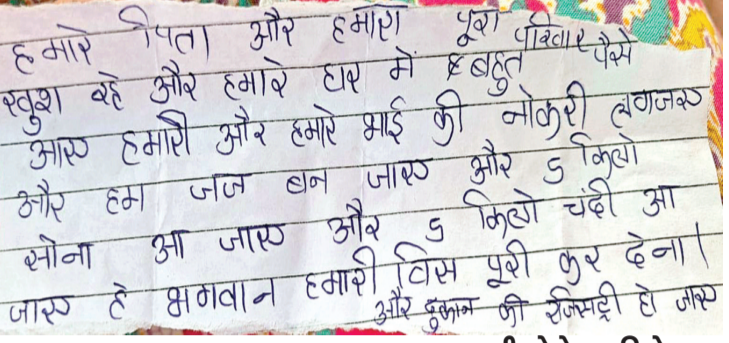 हमारे पिता और हमारा पूरा परिवार
खुश रहे और हमारे घर में बहुत पैसे
आए हमारी और हमारे भाई की नोकरी लगजए
और हम जज बन जाए और 5 किलो
सोना आ जाए और 5 किलो चंदी आ
जाए हे भगवान हमारी विस पूरी कर देना।
और दुकान की रजिसट्री हो जाए